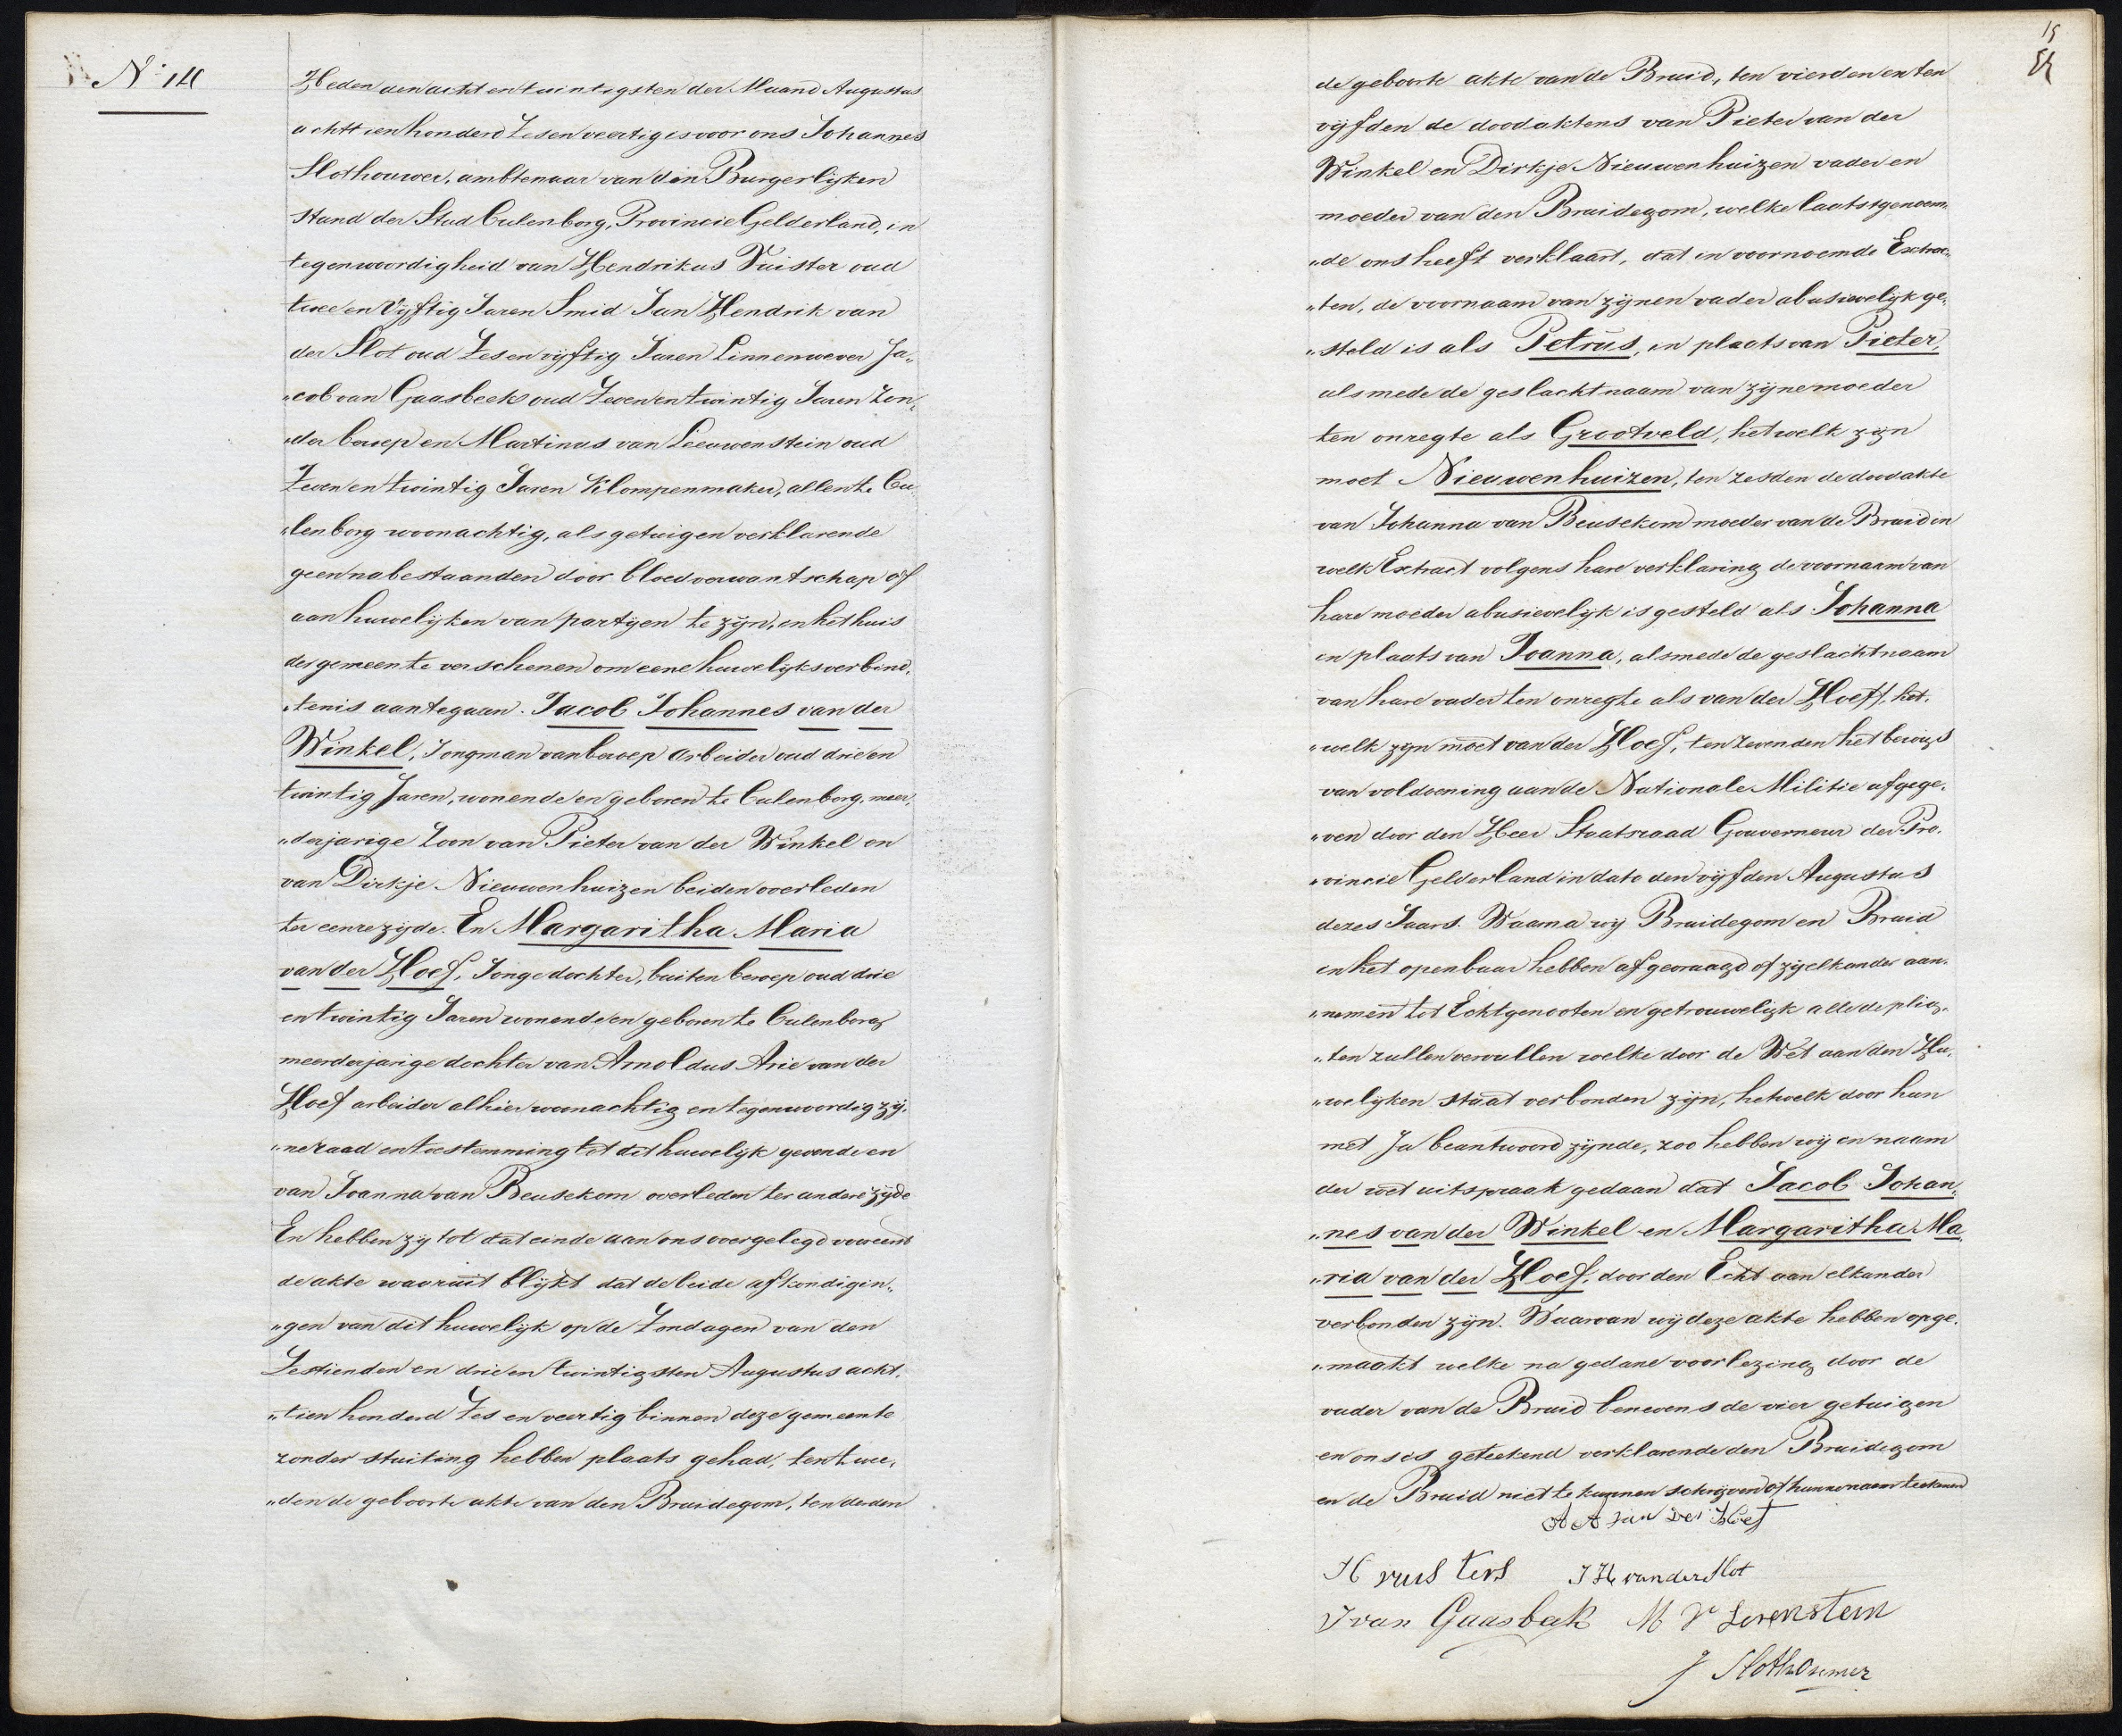 No 14
Heden den acht en twintigsten der Maand Augustus
achttien honderd Zes en veertig is voor ons Johannes
Slothouwer, ambtenaar van den Burgerlijken
Stand der Stad Culenborg, Provincie Gelderland, in
tegenwoordigheid van Hendrikus Vuister oud
twee en Vijftig Jaren Smid Jan Hendrik van
der Slot oud Zes en vijftig Jaren Linnenwever Ja„
„cob van Gaasbeek oud Zeven en twintig Jaren Zon„
„der beroep en Martinus van Leeuwenstein oud
Zeven en twintig Jaren Klompenmaker, allen te Cu„
„lenborg woonachtig, als getuigen verklarende
geen nabestaanden door bloedverwantschap of
aan huwelijken van partijen te zijn, in het huis
der gemeente verschenen om eene huwelijksverbind„
„tenis aantegaan. Jacob Johannes van der
Winkel, Jongman van beroep arbeider oud drie en
twintig Jaren, wonende en geboren te Culenborg, meer„
„derjarige Zoon van Pieter van der Winkel en
van Dirkje Nieuwenhuizen beiden overleden
ter eenre zijde. En Margaritha Maria
van der Hoef, Jongedochter, buiten beroep oud drie
en twintig Jaren wonende en geboren te Culenborg
meerderjarige dochter van Arnoldus Arie van der
Hoef arbeider alhier woonachtig en tegenwoordig zij„
„ne raad en toestemming tot dit huwelijk gevende en
van Joanna van Beusekom overleden ter andere zijde
En hebben zij tot dat einde aan ons overgelegd vooreerst
de akte waaruit blijkt dat de beide afkondigin„
„gen van dit huwelijk op de Zondagen van den
Zestienden en drie en twintigsten Augustus acht„
„tien honderd Zes en veertig binnen deze gemeente
zonder stuiting hebben plaats gehad, ten twee„
„den de geboorte akte van den Bruidegom, ten derden
15
de geboorte akte van de Bruid, ten vierden en ten
vijfden de doodaktens van Pieter van der
Winkel en Dirkje Nieuwenhuizen vader en
moeder van den Bruidegom, welke laatstgenoem„
„de ons heeft verklaart, dat in voornoemde Extrac„
„ten, de voornaam van zijnen vader abusivelijk ge„
„steld is als Petrus, in plaats van Pieter,
alsmede de geslachtnaam van zijne moeder
ten onregte als Grootveld, hetwelk zijn
moet Nieuwenhuizen, ten zesden de doodakte
van Johanna van Beusekom moeder van de Bruid in
welk Extract volgens hare verklaring de voornaam van
hare moeder abusievelijk is gesteld als Johanna
in plaats van Joanna, alsmede de geslachtnaam
van hare vader ten onregte als van der Hoeff, het„
„welk zijn moet van der Hoef, ten zevenden het bewijs
van voldoening aan de Nationale Militie afgege„
„ven door den Heer Staatsraad Gouverneur der Pro„
„vincie Gelderland in dato den vijfden Augustus
dezes Jaars. Waarna wij Bruidegom en Bruid
in het openbaar hebben afgevraagd of zij elkander aan„
„nemen tot Echtgenooten en getrouwelijk alle de plig„
„ten zullen vervullen welke door de Wet aan den Hu„
„welijken staat verbonden zijn, hetwelk door hun
met Ja beantwoord zijnde, zoo hebben wij in naam
der wet uitspraak gedaan dat Jacob Johan„
„nes van der Winkel en Margaritha Ma„
„ria van der Hoef, door den Echt aan elkander
verbonden zijn. Waarvan wij deze akte hebben opge„
„maakt welke na gedane voorlezing door de
vader van de Bruid benevens de vier getuigen
en ons is geteekend verklarende den Bruidegom
en de Bruid niet te kunnen schrijven of hunne naam teekenen
A A van der Hoef
H vuisters J H van der Slot
J van Gaasbeek M V Levenstein
J Slothouwer